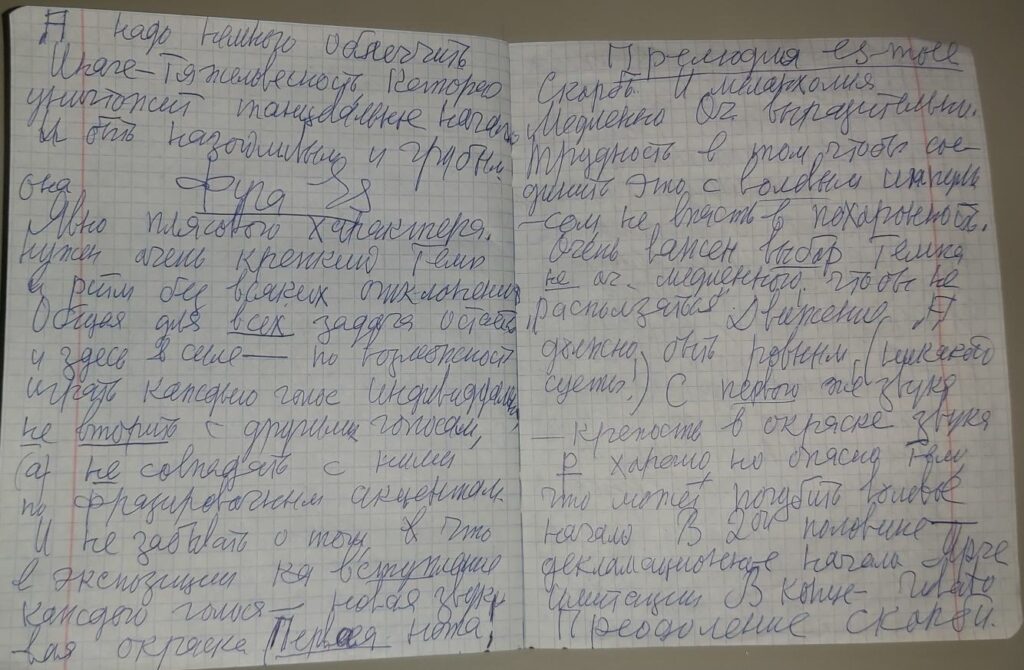 ♬ надо немного облегчить
Иначе - тяжеловесность которая
уничтожит танцевальные начала
и быть назойливым и грубым
она Фуга
Явно плясового характера.
нужен очень крепкий темп
и ритм без всяких отклонений
Общая для всех задача остается
и здесь в силе — по возможности
играть каждый голос индивидуально,
не вторить с другими голосам,
(а) не совпадать с ними
по фразировочным акцентам.
И не забывать о том, что
в экспозиции на вступление
каждого голоса — новая звуко
вая окраска (Первая нота!
Прелюдия es-moll
Скорбь и меланхолия
Медленно Оч. выразительно.
Трудность в том, чтобы сое-
динить это с волевым импуль
-сом не впасть в похоронность.
Очень важен выбор темпа
не оч. медленный, чтобы не
"расползаться" Движение ♬
должно быть ровным (никакой
суеты!) С первого же звука
— крепость в окраске звука
p хорошо, но опасно тем,
что может погубить волевое
начало В 2ой половине —
декламационное начала Ярче
имитации В конце
Преодоление скорби.